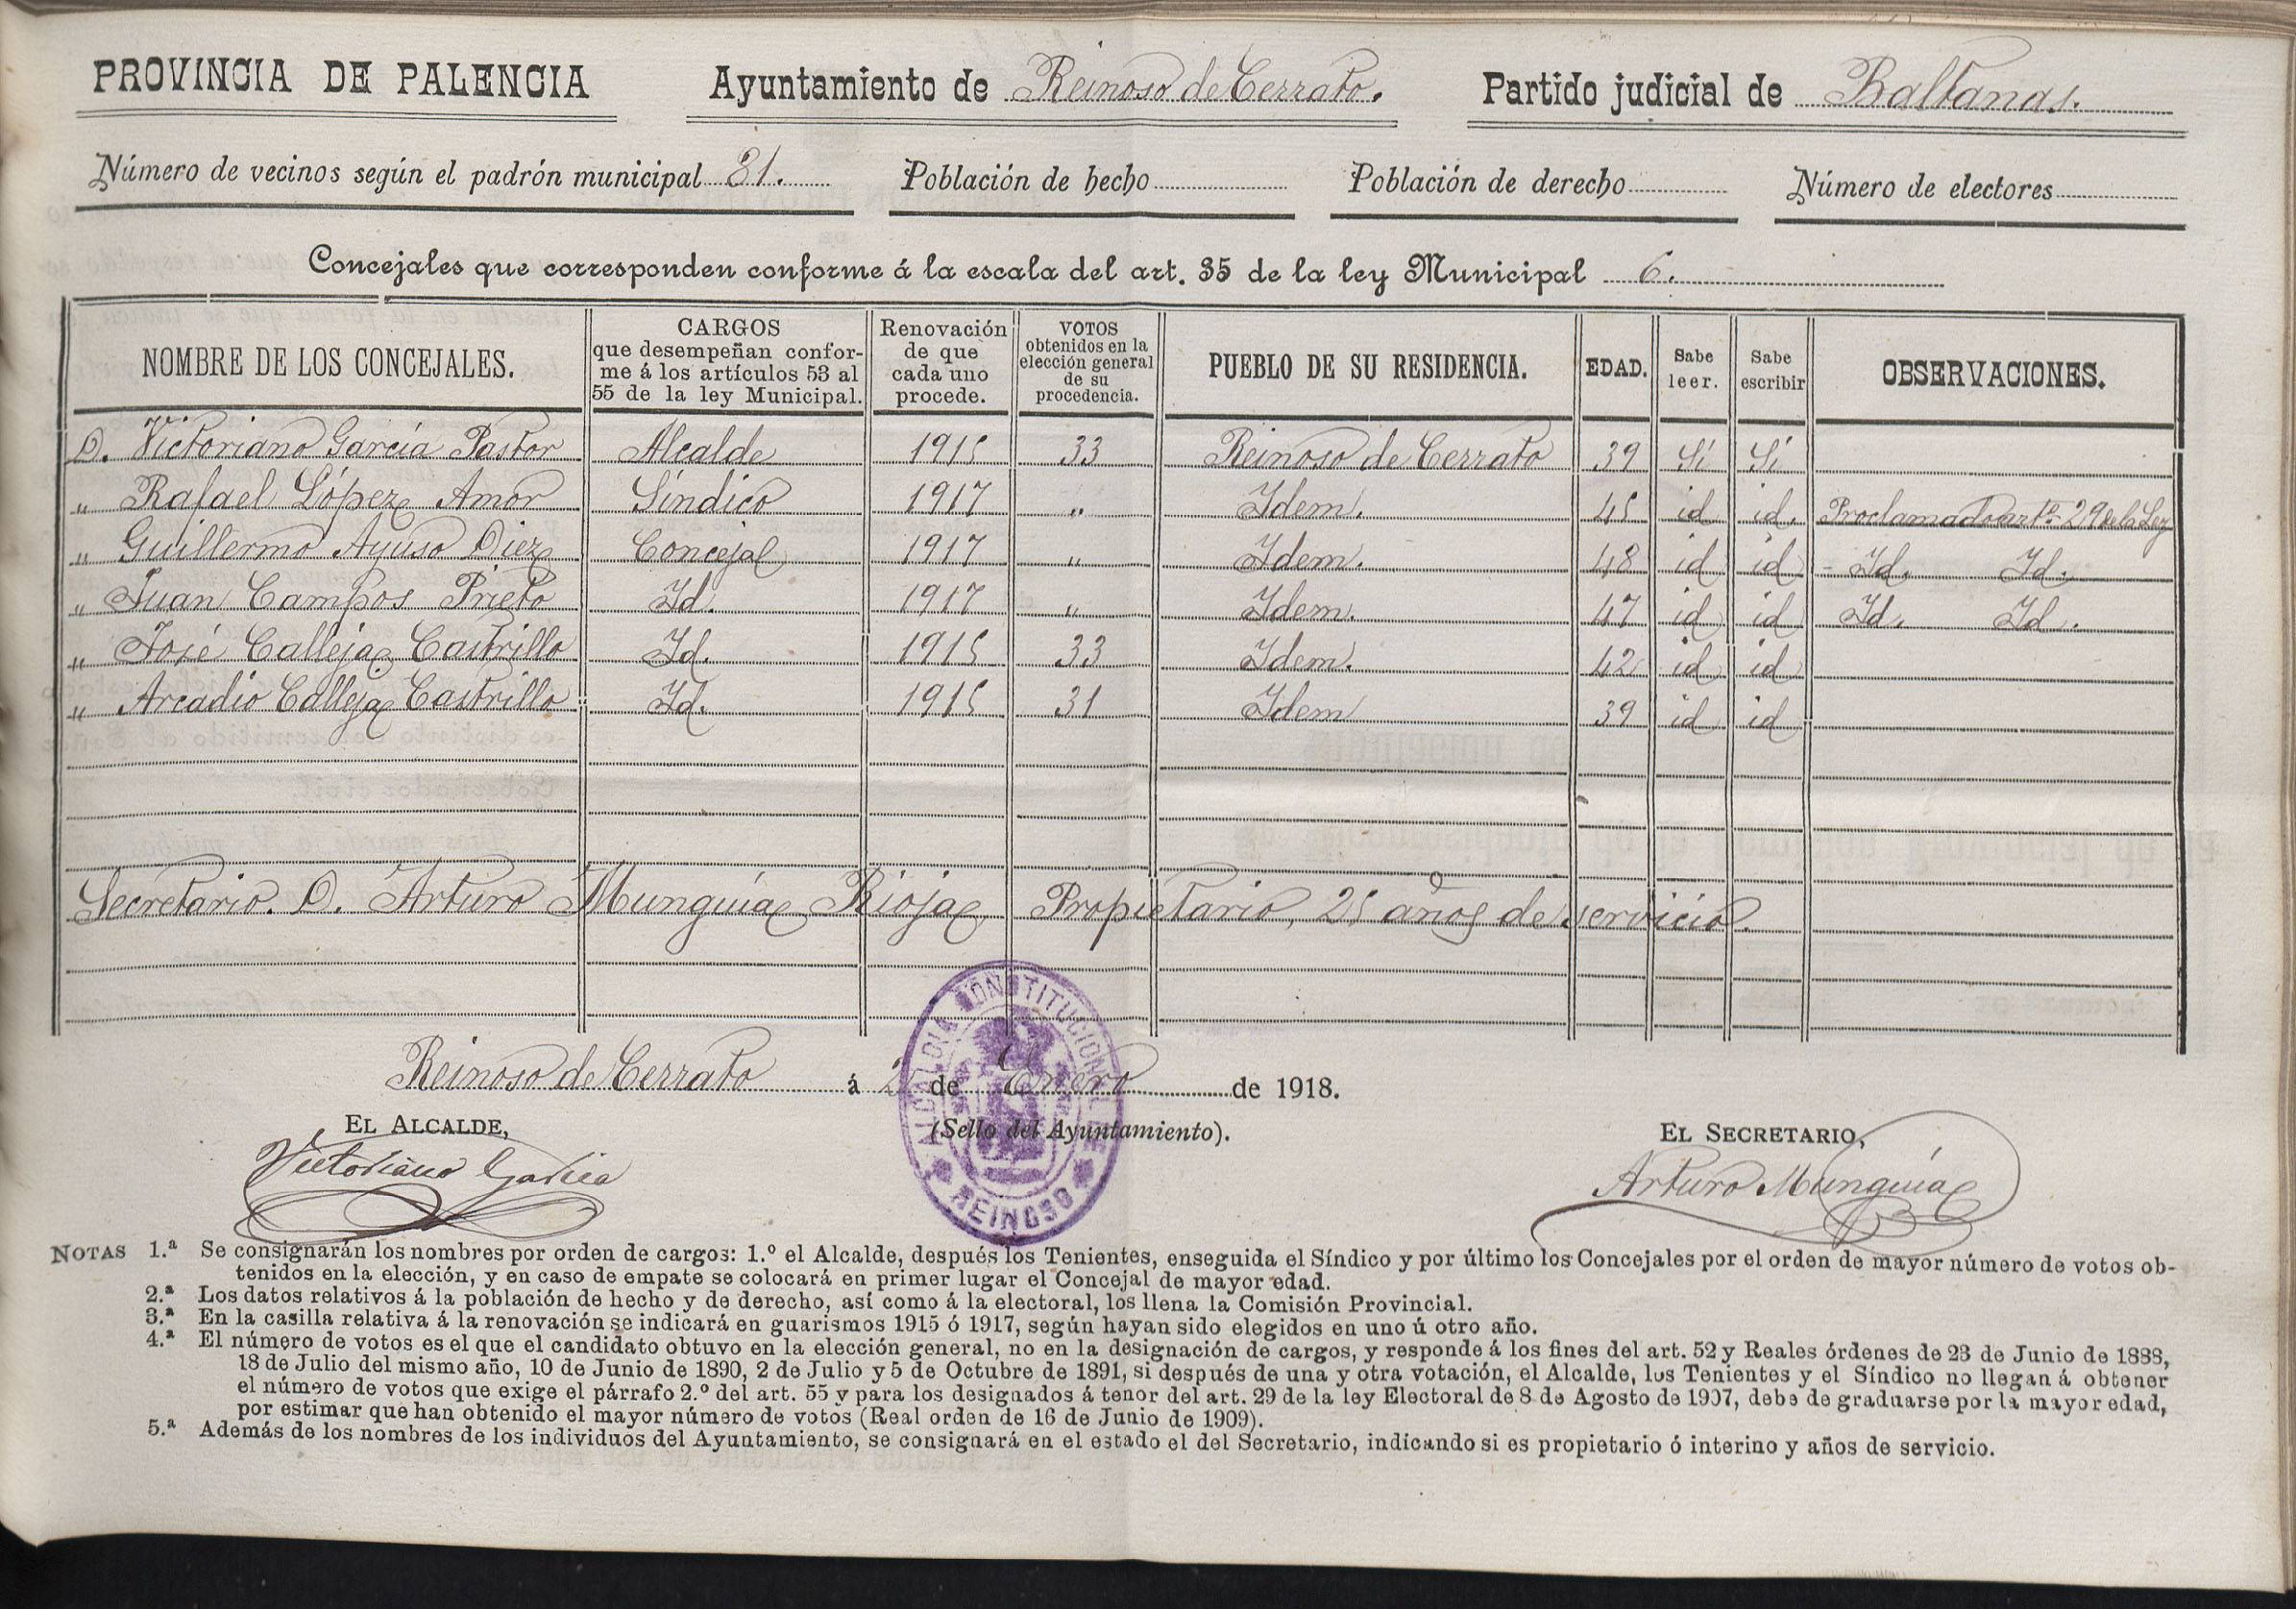 PROVINCIA DE PALENCIA Ayuntamiento de Reinoso de Cerrato. Partido judicial de Baltanas.
Número de vecinos según el padrón municipal 81. Población de hecho Población de derecho Número de electores
Concejales que corresponden conforme á la escala del art. 35 de la ley Municipal 6.
NOMBRE DE LOS CONCEJALES. CARGOS que desempeñan confor-me á los artículos 53 al 55 de la ley Municipal. Renovación de que cada uno procede. VOTOS obtenidos en la elección general de su procedencia. PUEBLO DE SU RESIDENCIA. EDAD. Sabe leer. Sabe escribir OBSERVACIONES.
D. Victoriano García Pastor Alcalde 1915 33 Reinoso de Cerrato 39 Sí Sí
" Rafael López Amor Síndico 1917 " Idem. 45 id id. Proclamado artº 29 de la Ley
" Guillermo Ayuso Diez Concejal 1917 " Idem. 48 id id - Id. Id.
" Juan Campos Prieto Id. 1917 " Idem. 47 id id Id. Id.
" José Calleja Castrillo Id. 1915 33 Idem. 42 id id
" Arcadio Calleja Castrillo Id. 1915 31 Idem 39 id id
Secretario. D. Arturo Munguía Rioja Propietario, 25 años de servicio.
Reinoso de Cerrato á 2 de Enero de 1918.
EL ALCALDE, (Sello del Ayuntamiento). EL SECRETARIO,
Victoriano García Arturo Munguía
ALCALDIA CONSTITUCIONAL DE REINOSO
NOTAS 1.ª Se consignarán los nombres por orden de cargos: 1.º el Alcalde, después los Tenientes, enseguida el Síndico y por último los Concejales por el orden de mayor número de votos ob-
tenidos en la elección, y en caso de empate se colocará en primer lugar el Concejal de mayor edad.
2.ª Los datos relativos á la población de hecho y de derecho, así como á la electoral, los llena la Comisión Provincial.
3.ª En la casilla relativa á la renovación se indicará en guarismos 1915 ó 1917, según hayan sido elegidos en uno ú otro año.
4.ª El número de votos es el que el candidato obtuvo en la elección general, no en la designación de cargos, y responde á los fines del art. 52 y Reales órdenes de 23 de Junio de 1888,
18 de Julio del mismo año, 10 de Junio de 1890, 2 de Julio y 5 de Octubre de 1891, si después de una y otra votación, el Alcalde, los Tenientes y el Síndico no llegan á obtener
el número de votos que exige el párrafo 2.º del art. 55 y para los designados á tenor del art. 29 de la ley Electoral de 8 de Agosto de 1907, debe de graduarse por la mayor edad,
por estimar que han obtenido el mayor número de votos (Real orden de 16 de Junio de 1909).
5.ª Además de los nombres de los individuos del Ayuntamiento, se consignará en el estado el del Secretario, indicando si es propietario ó interino y años de servicio.